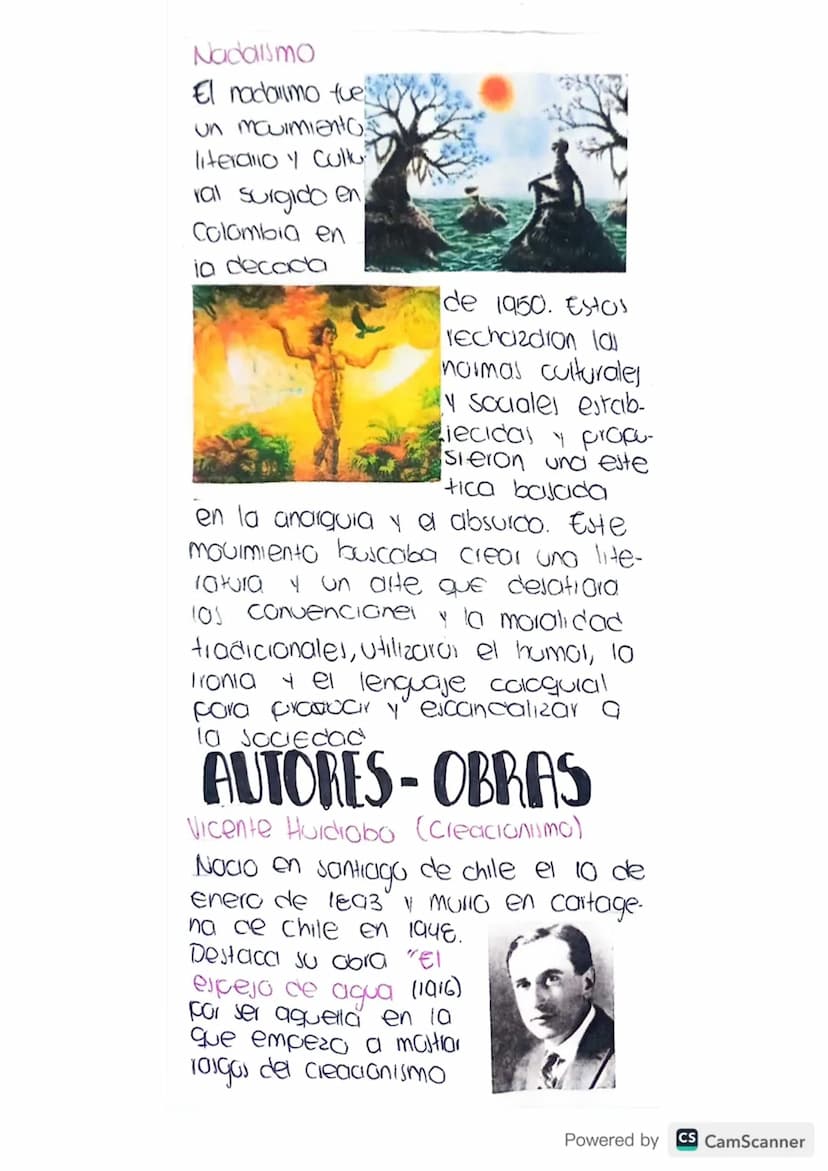 Nadaismo
El nadaismo fue
un movimiento
literario y Cultu
ral surgido en
Colombia en
la decada
de 1950. Estos
rechazaron las
normas culturales
y sociales estab-
lecidas y propu-
sieron una este
tica basada
en la anarquia y el absurdo. Este
movimiento buscaba crear una lite-
ratura y un arte que desafiara
las convenciones y la moralidad
tradicionales, utilizaron el humor, la
ironia y el lenguaje coloquial
para provocar y escandalizar a
la sociedad
AUTORES - OBRAS
Vicente Huidrobo (Creacionismo)
Nacio en santiago de chile el 10 de
enero de 1893 y murio en cartage-
na de Chile en 1948.
Destaca su obra "El
espejo de agua (1916)
por ser aquella en la
que empezo a mostrar
rasgos del creacionismo
Powered by CS CamScanner